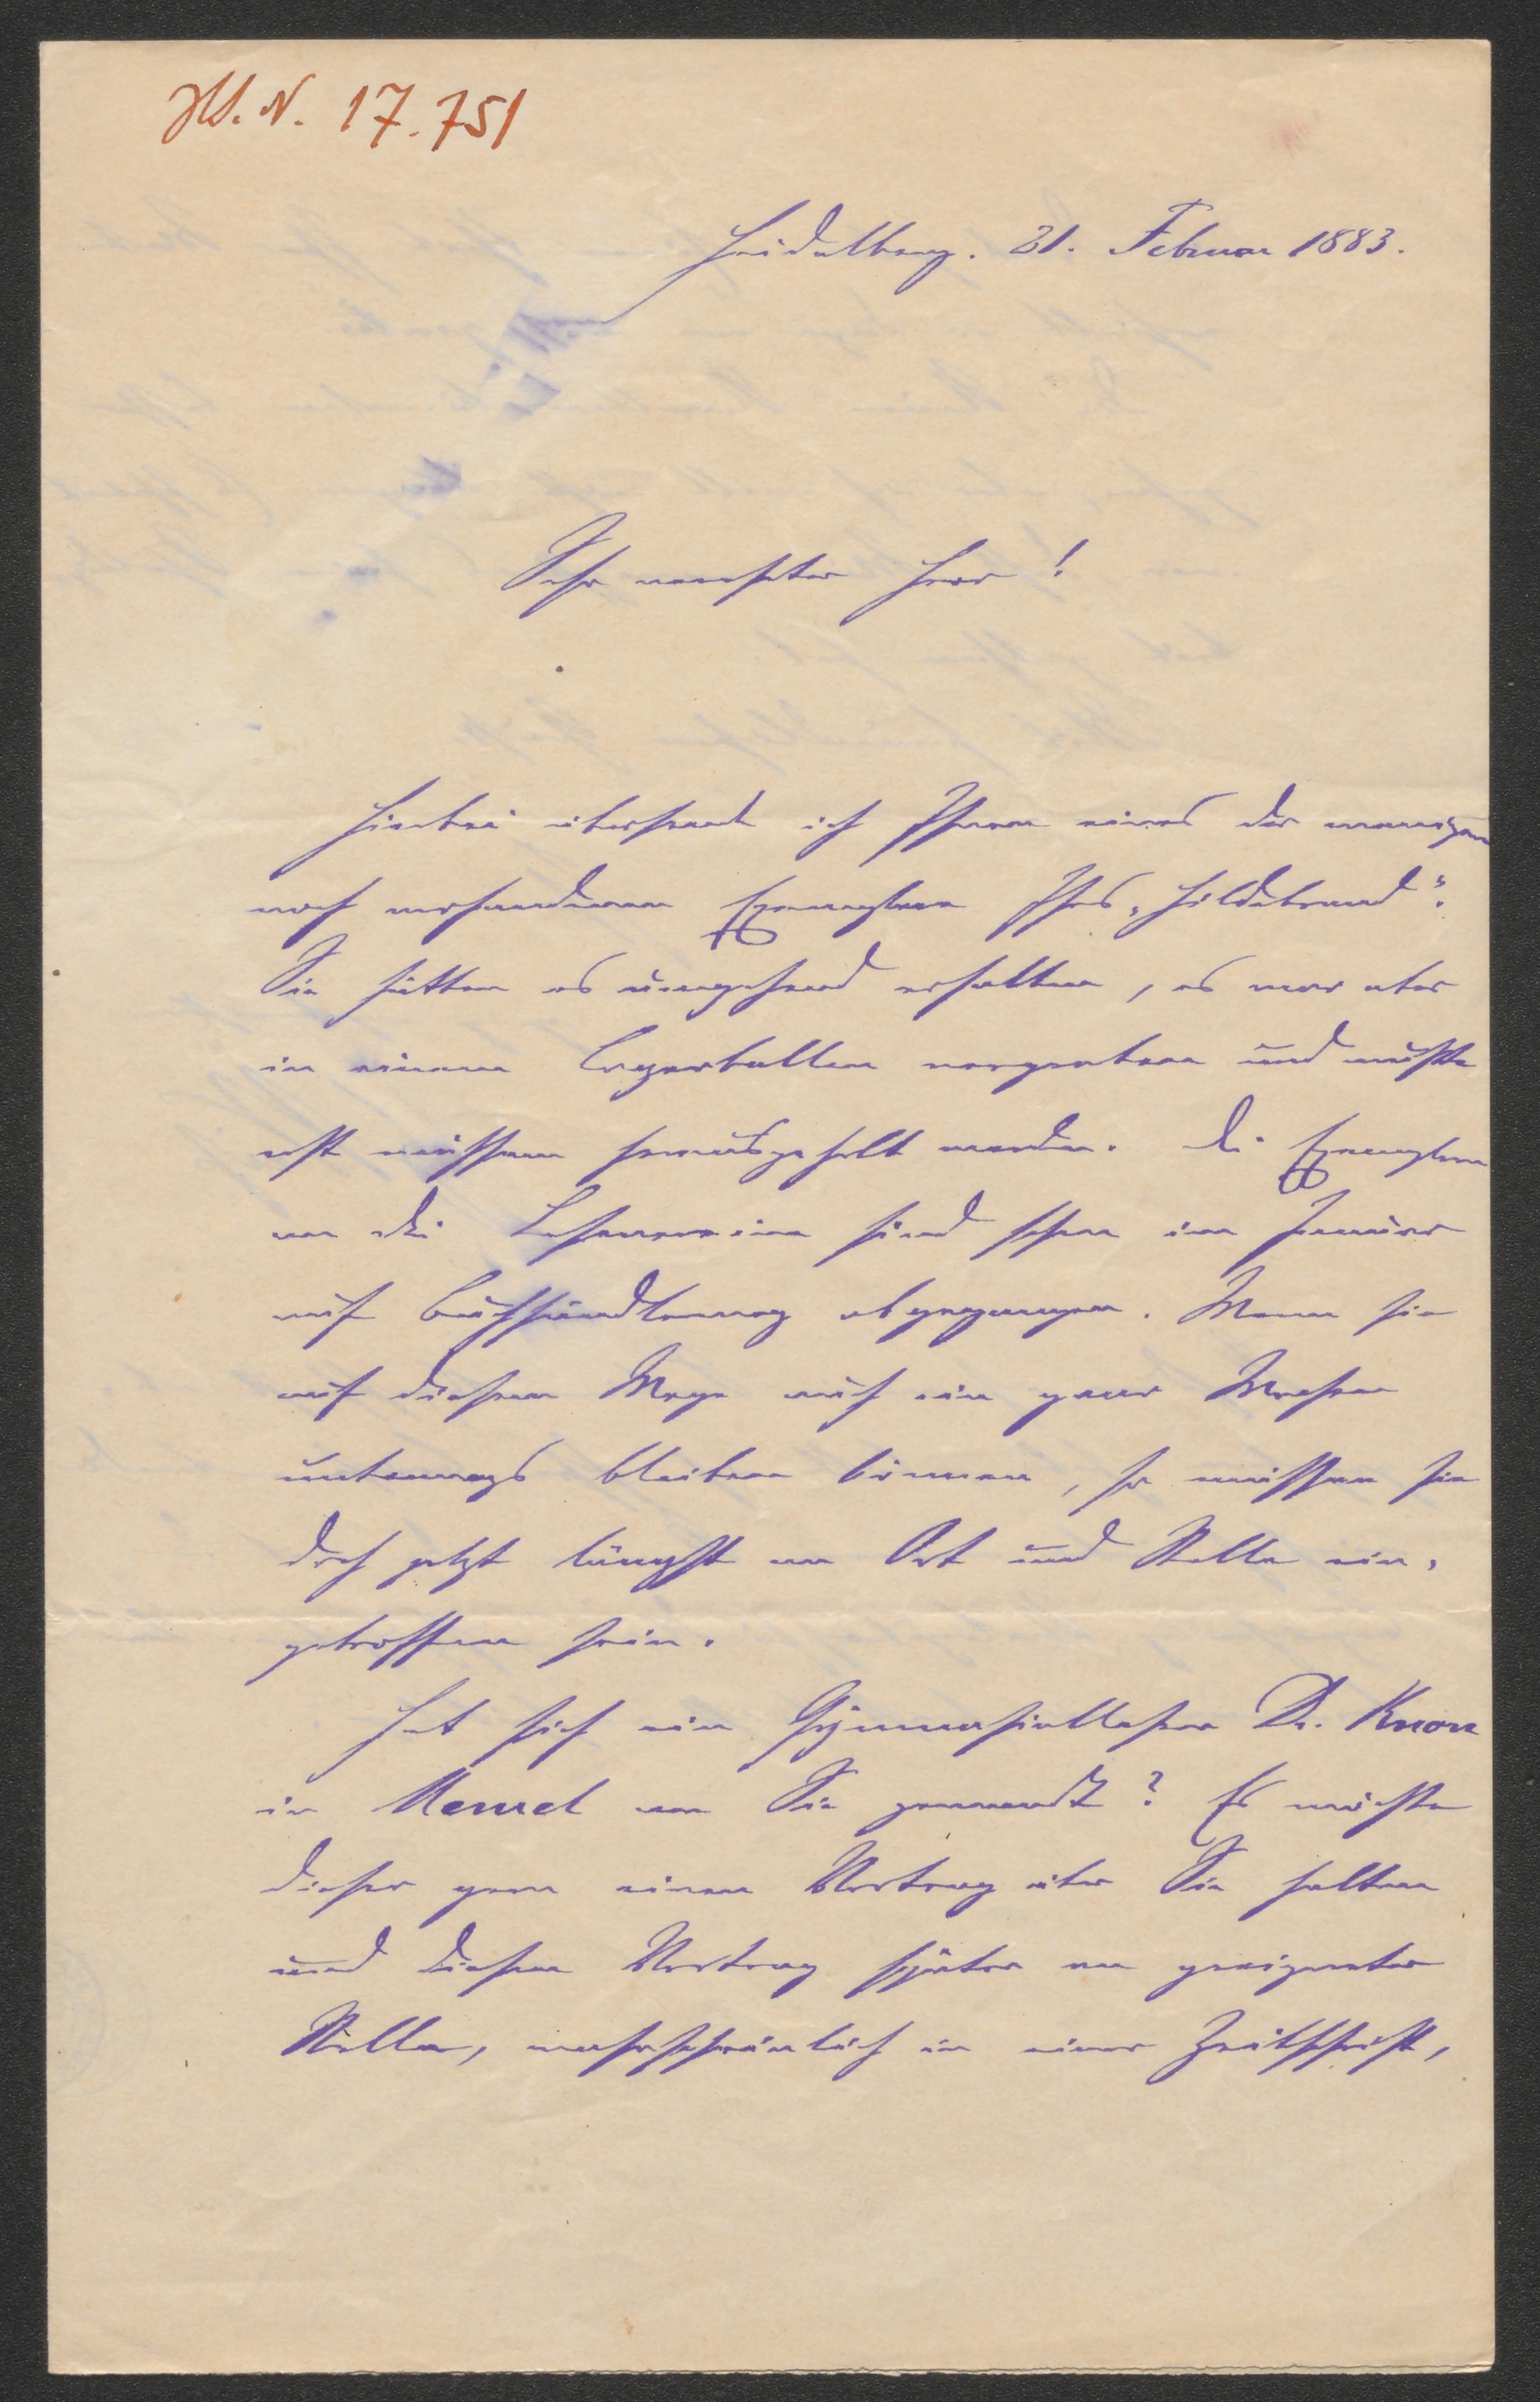 JH. N. 17.751
Heidelberg. 21. Februar 1883.
Sehr verehrter Herr!
Hierbei übersend ich Ihnen eines der wenigen
noch vorhandenen Exemplare Ihres „Hildebrand".
Sie hätten es umgehend erhalten, es war aber
in einem Lagerballen vergraben und mußte
erst mühsam herausgeholt werden. Die Exemplare
an die sind schon im Januar
auf Buchhändlerweg abgegangen. Wenn sie
auf diesem Wege auch ein paar Wochen
unterwegs bleiben können, so müssen sie
doch jetzt längst an Ort und Stelle ein-
getroffen sein.
Hat sich ein Gymnasiallehrer Dr. Knorr
in Memel an Sie gewandt? Es möchte
dieser gern einen Vortrag über Sie halten
und diesen Vortrag später an geeigneter
Stelle, wahrscheinlich in einer Zeitschrift,